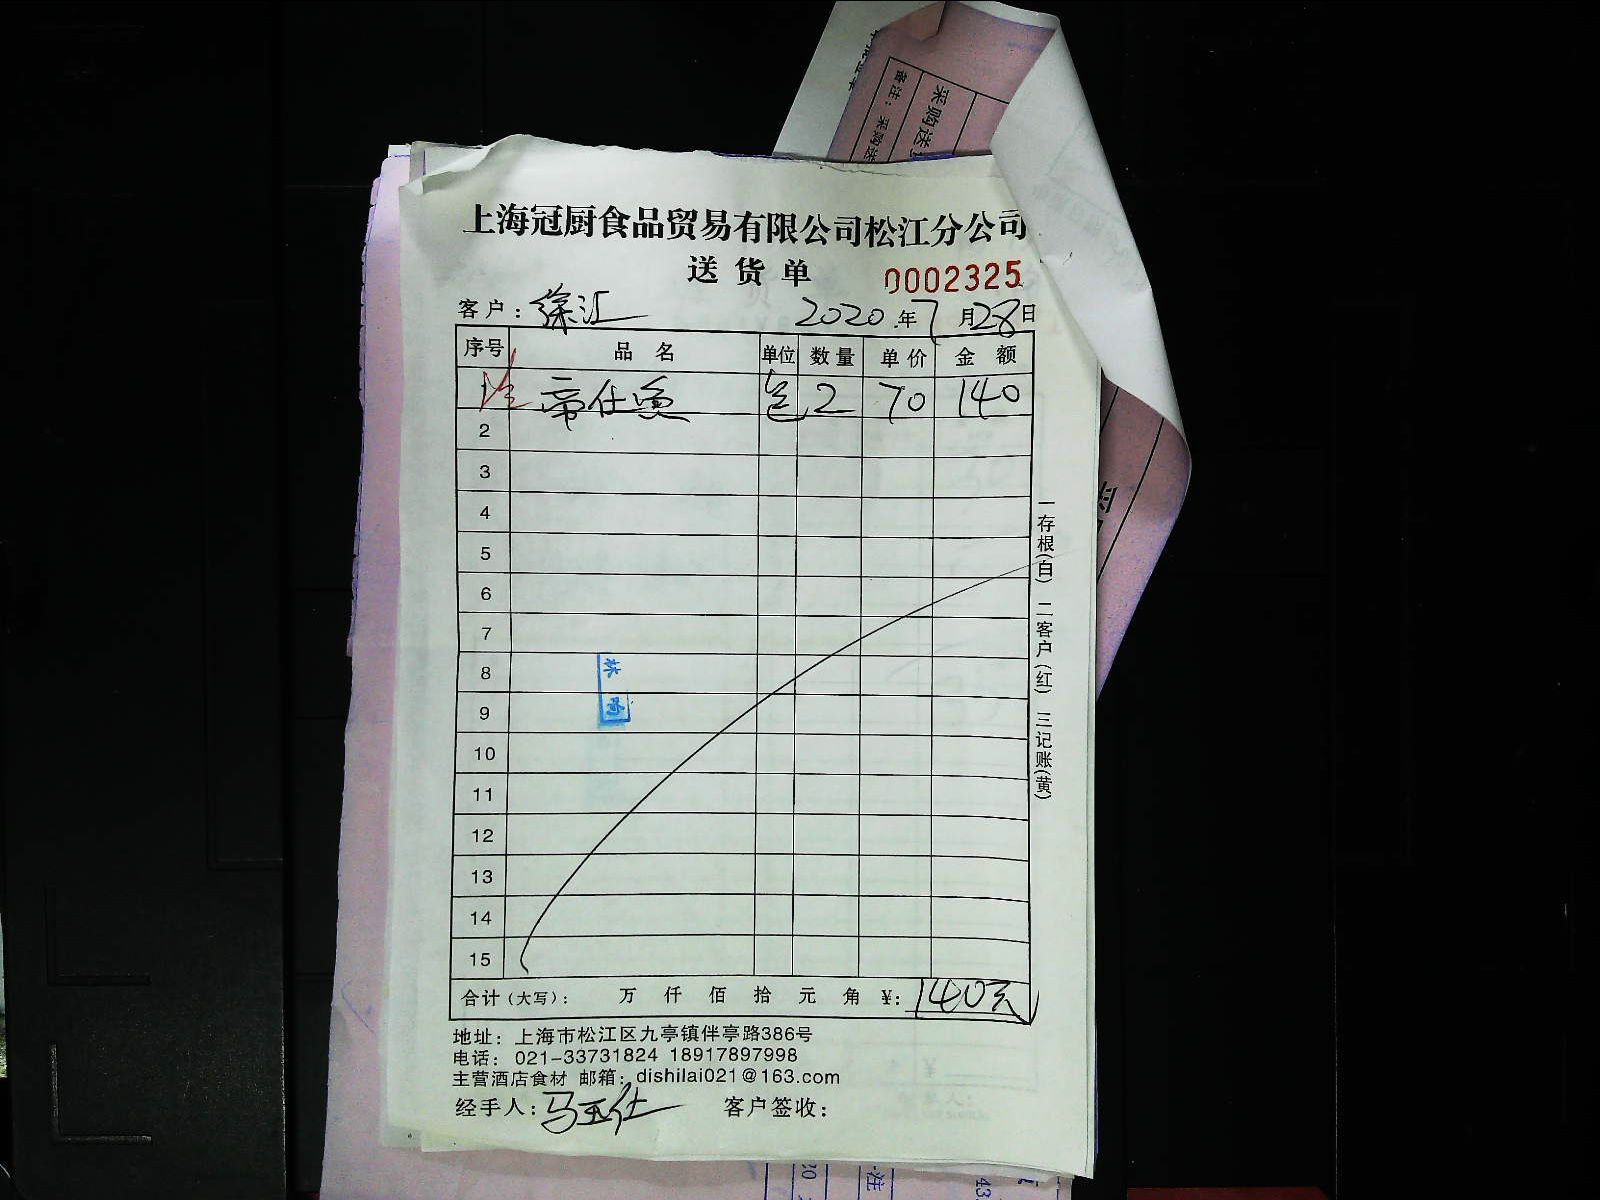 上海冠厨食品贸易有限公司松江分公司
送货单 0002325
客户: 徐汇 2020年7月28日
序号 品名 单位 数量 单价 金额
1 帝仕鱼 包 2 70 140
2
3
4
5
6
7
8
9
10
11
12
13
14
15
合计(大写): 万 仟 佰 拾 元 角 ¥: 140元
地址: 上海市松江区九亭镇伴亭路386号
电话: 021-33731824 18917897998
主营酒店食材 邮箱: dishilai021@163.com
经手人: 马玉仕 客户签收:
一存根(白) 二客户(红) 三记账(黄)
采购送
备注: 采购送